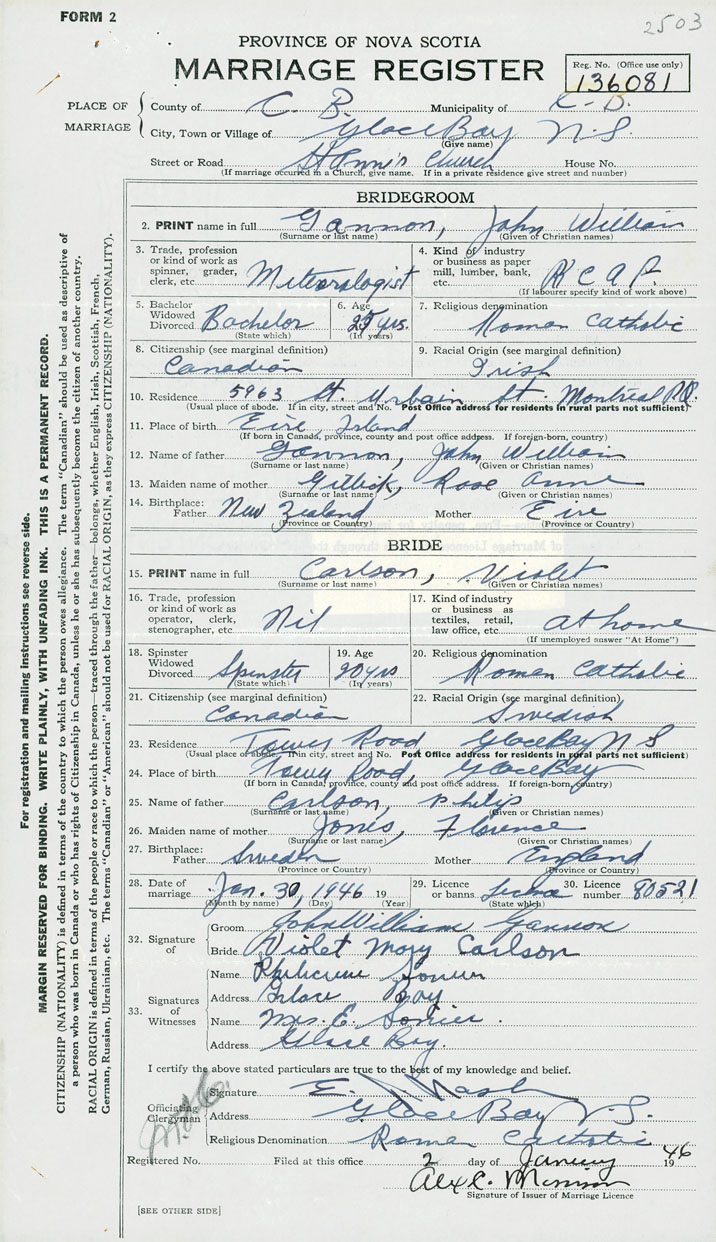 FORM 2
2503
PROVINCE OF NOVA SCOTIA
MARRIAGE REGISTER
Reg. No. (Office use only)
136081
PLACE OF MARRIAGE
County of C. B. Municipality of C. B.
City, Town or Village of Glace Bay N.S.
(Give name)
Street or Road St Anne's Church House No.
(If marriage occurred in a Church, give name. If in a private residence give street and number)
BRIDEGROOM
2. PRINT name in full Gannon, John William
(Surname or last name) (Given or Christian names)
3. Trade, profession or kind of work as spinner, grader, clerk, etc. Meteorologist
4. Kind of industry or business as paper mill, lumber, bank, etc. R C A F.
(If labourer specify kind of work above)
5. Bachelor Widowed Divorced Bachelor
(State which)
6. Age 25 yrs.
(In years)
7. Religious denomination Roman Catholic
8. Citizenship (see marginal definition) Canadian
9. Racial Origin (see marginal definition) Irish
10. Residence 5963 St. Urbain St. Montreal P.Q.
(Usual place of abode. If in city, street and No. Post Office address for residents in rural parts not sufficient)
11. Place of birth Eire, Irland
(If born in Canada, province, county and post office address. If foreign-born, country)
12. Name of father Gannon, John William
(Surname or last name) (Given or Christian names)
13. Maiden name of mother Rose Anne
(Surname or last name) (Given or Christian names)
14. Birthplace: Father New Zealand Mother Eire
(Province or Country) (Province or Country)
BRIDE
15. PRINT name in full Carlson, Violet
(Surname or last name) (Given or Christian names)
16. Trade, profession or kind of work as operator, clerk, stenographer, etc. Nil
17. Kind of industry or business as textiles, retail, law office, etc. at home
(If unemployed answer "At Home")
18. Spinster Widowed Divorced Spinster
(State which)
19. Age 20 yrs
(In years)
20. Religious denomination Roman Catholic
21. Citizenship (see marginal definition) Canadian
22. Racial Origin (see marginal definition) Swedish
23. Residence Tower Road Glace Bay N S
(Usual place of abode. If in city, street and No. Post Office address for residents in rural parts not sufficient)
24. Place of birth Tower Road, Glace Bay
(If born in Canada, province, county and post office address. If foreign-born, country)
25. Name of father Carlson, Philip
(Surname or last name) (Given or Christian names)
26. Maiden name of mother Jones, Florence
(Surname or last name) (Given or Christian names)
27. Birthplace: Father Sweden Mother England
(Province or Country) (Province or Country)
28. Date of marriage Jan. 30, 1946 19
(Month by name) (Day) (Year)
29. Licence or banns License
(State which)
30. Licence number 80521
32. Signature of
Groom John William Gannon
Bride Violet Mary Carlson
33. Signatures of Witnesses
Name
Address Glace Bay
Name Mrs. E.
Address Glace Bay.
I certify the above stated particulars are true to the best of my knowledge and belief.
Officiating Clergyman
Signature E.
Address Glace Bay N.S.
Religious Denomination Roman Catholic
Registered No. Filed at this office 2 day of January 1946
Alex C.
Signature of Issuer of Marriage Licence
[SEE OTHER SIDE]
For registration and mailing instructions see reverse side.
MARGIN RESERVED FOR BINDING. WRITE PLAINLY, WITH UNFADING INK. THIS IS A PERMANENT RECORD.
CITIZENSHIP (NATIONALITY) is defined in terms of the country to which the person owes allegiance. The term "Canadian" should be used as descriptive of
a person who was born in Canada or who has rights of Citizenship in Canada, unless he or she has subsequently become the citizen of another country.
RACIAL ORIGIN is defined in terms of the people or race to which the person—traced through the father—belongs, whether English, Irish, Scottish, French,
German, Russian, Ukrainian, etc. The terms "Canadian" or "American" should not be used for RACIAL ORIGIN, as they express CITIZENSHIP (NATIONALITY).